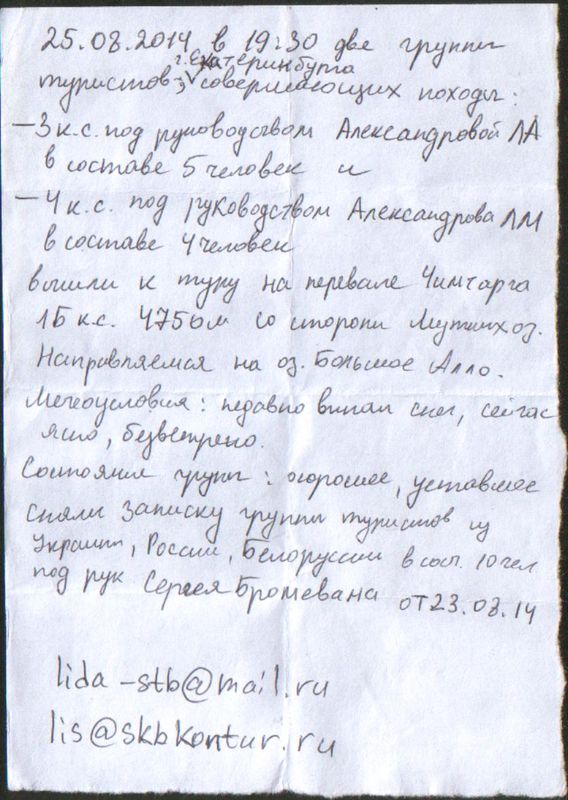 25.08.2014 в 19:30 две группы
г. Екатеринбурга
туристов, совершающих походы:
– 3 к.с. под руководством Александровой ЛА
в составе 5 человек и
– 4 к.с. под руководством Александрова ЛМ
в составе 4 человек
вышли к туру на перевале Чимтарга
1Б к.с. 4750м со стороны Мутных оз.
Направляемся на оз. Большое Алло.
Метеоусловия: недавно выпал снег, сейчас
ясно, безветрено.
Состояние групп: хорошее, уставшее
Сняли записку группы туристов из
Украины, России, Белоруссии в сост. 10 чел
под рук Сергея Бромевана от 23.08.14
lida-stb@mail.ru
lis@skbkontur.ru